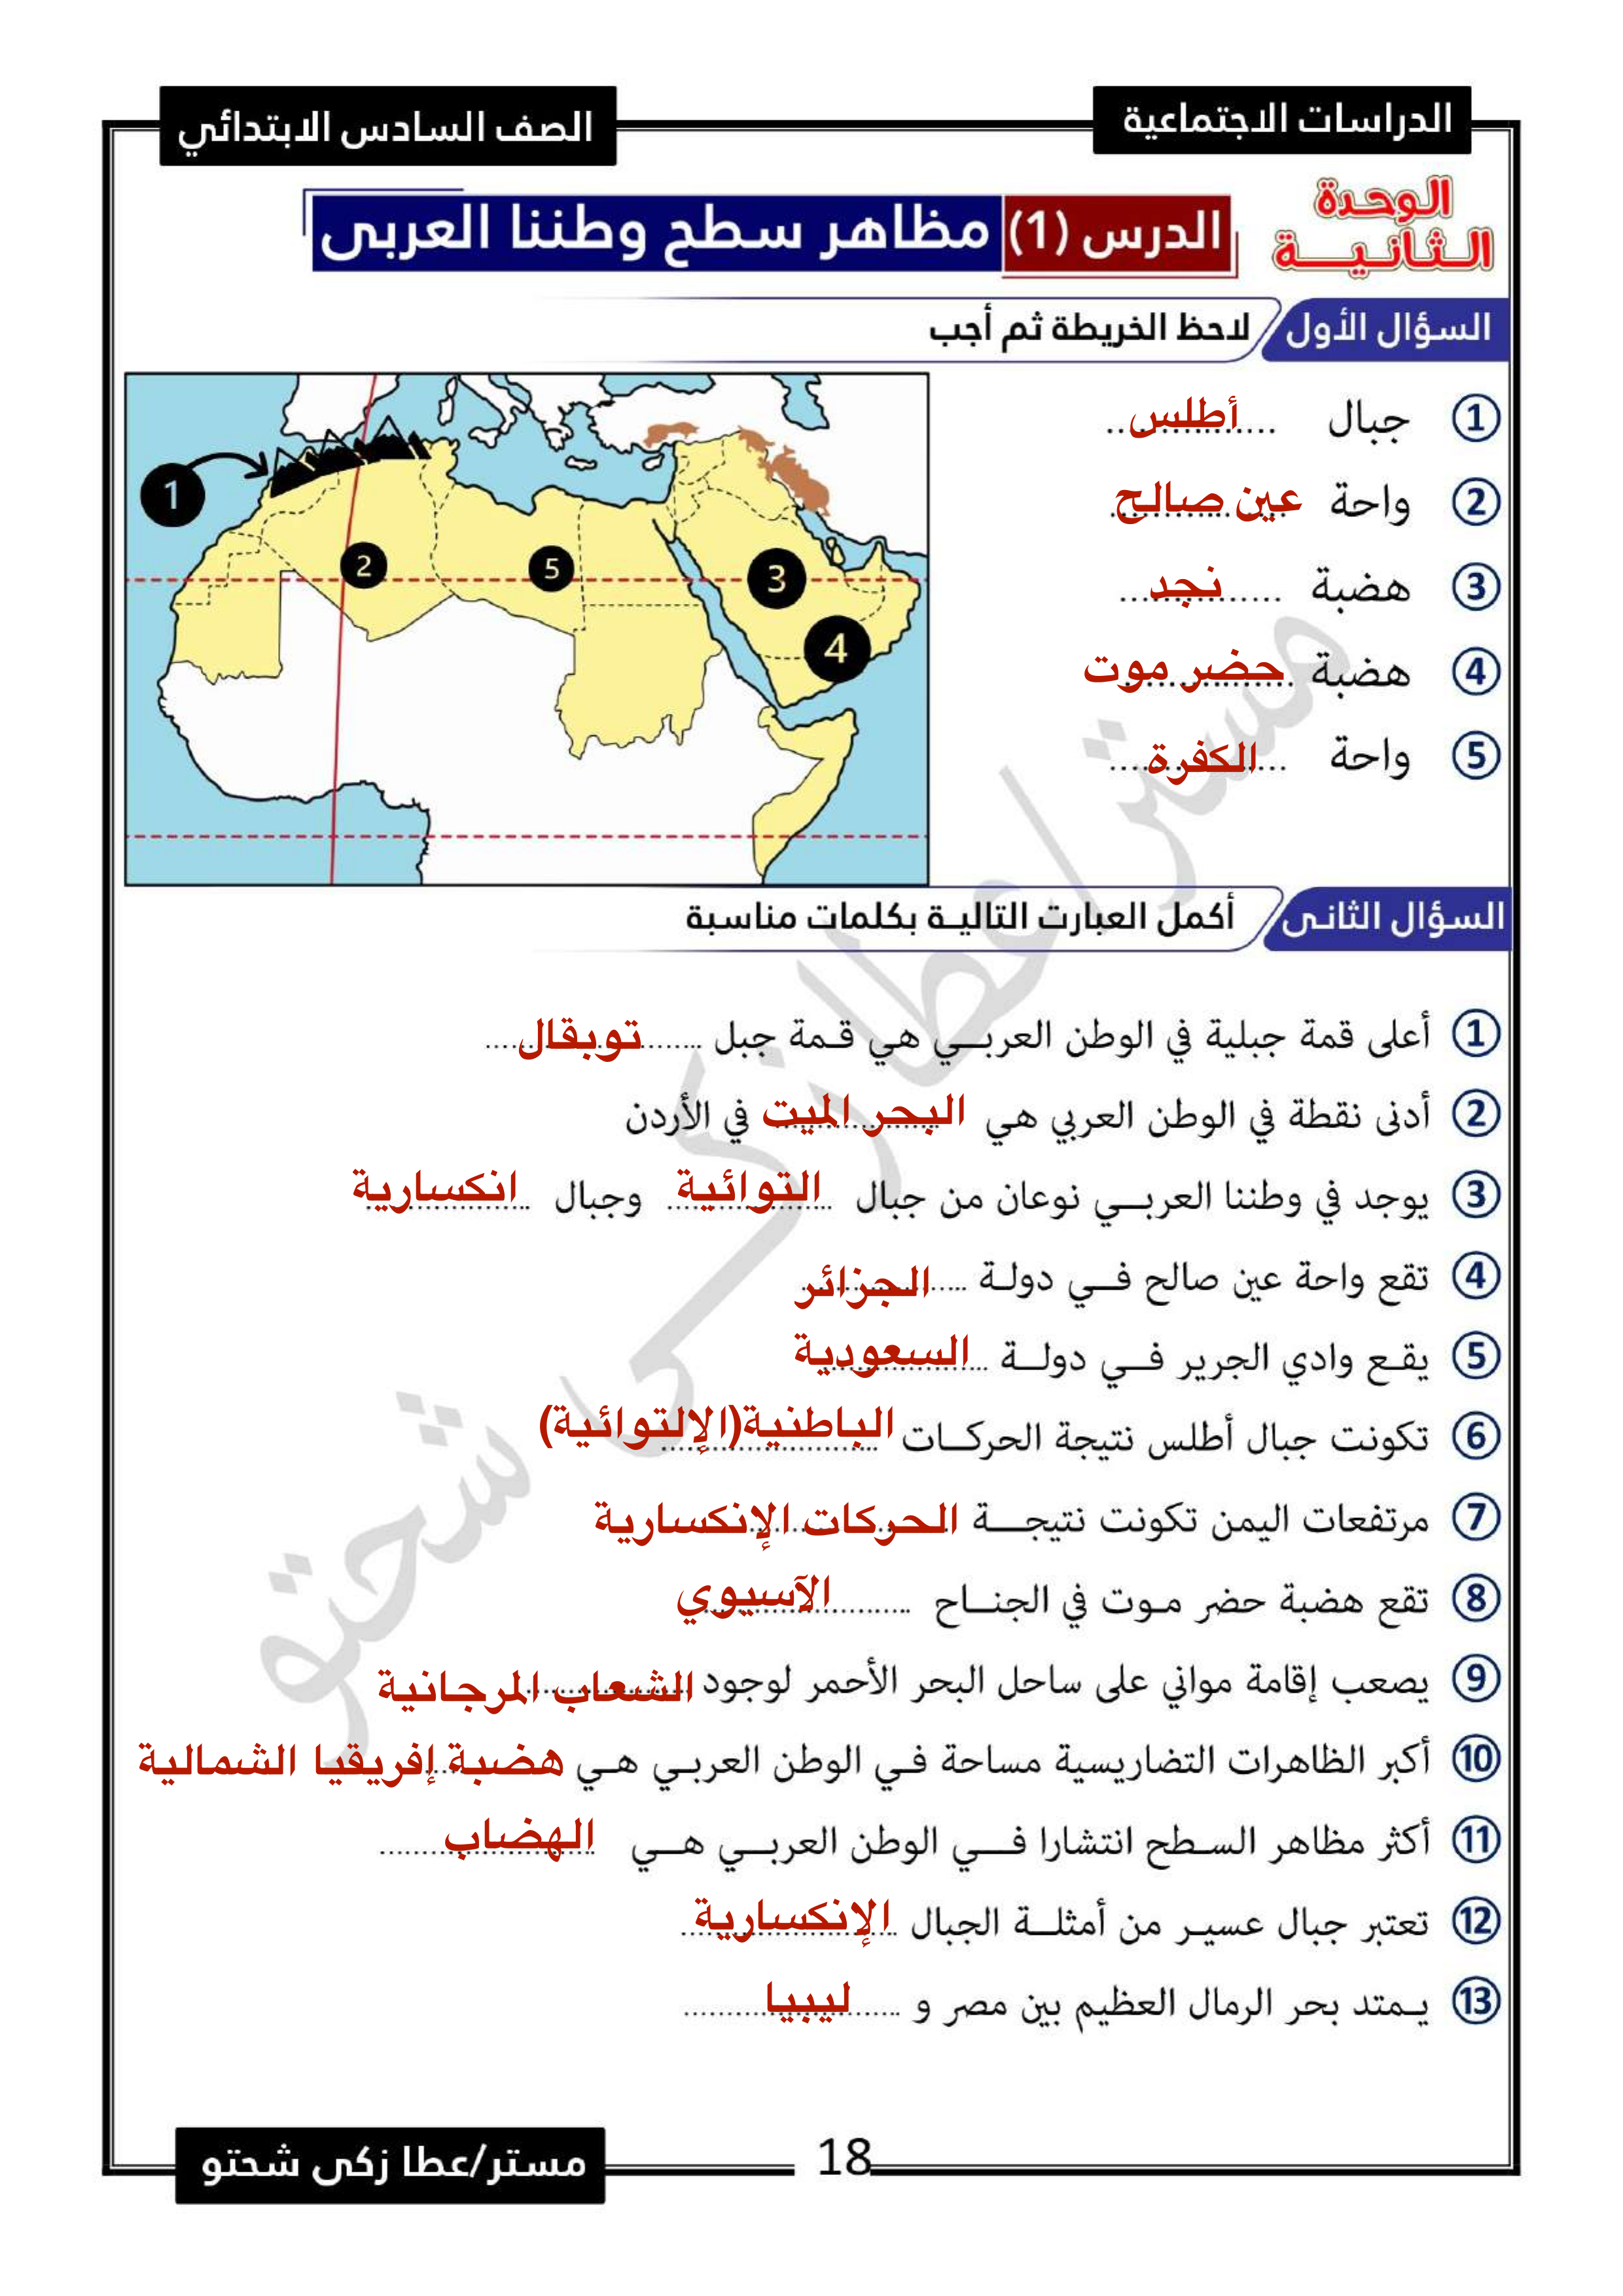 الدراسات الاجتماعية
الصف السادس الابتدائي
الوحدة
الثانية
الدرس (1) مظاهر سطح وطننا العربى
السؤال الأول لاحظ الخريطة ثم أجب
1 جبال أطلس
2 واحة عين صالح
3 هضبة نجد
4 هضبة حضر موت
5 واحة الكفرة
1
2
5
3
4
السؤال الثانى أكمل العبارت التالية بكلمات مناسبة
1 أعلى قمة جبلية في الوطن العربي هي قمة جبل توبقال
2 أدنى نقطة في الوطن العربي هي البحر الميت في الأردن
3 يوجد في وطننا العربي نوعان من جبال التوائية وجبال انكسارية
4 تقع واحة عين صالح في دولة الجزائر
5 يقع وادي الجرير في دولة السعودية
6 تكونت جبال أطلس نتيجة الحركات الباطنية(الإلتوائية)
7 مرتفعات اليمن تكونت نتيجة الحركات الإنكسارية
8 تقع هضبة حضر موت في الجناح الآسيوي
9 يصعب إقامة مواني على ساحل البحر الأحمر لوجود الشعاب المرجانية
10 أكبر الظاهرات التضاريسية مساحة في الوطن العربي هي هضبة إفريقيا الشمالية
11 أكثر مظاهر السطح انتشارا في الوطن العربي هي الهضاب
12 تعتبر جبال عسير من أمثلة الجبال الإنكسارية
13 يمتد بحر الرمال العظيم بين مصر و ليبيا
مستر/عطا زكى شحتو
18
مستر/عطا زكى شحتو